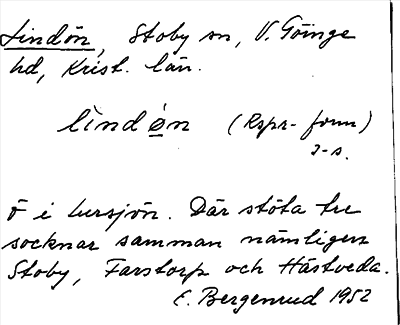 Lindön, Stoby sn, V. Göinge
hd, Krist. län.
lìndø̀n (Rspr-form)
2-s.
Ö i Lursjön. Där stöta tre
socknar samman nämligen
Stoby, Farstorp och Hästveda.
E. Bergenrud 1952